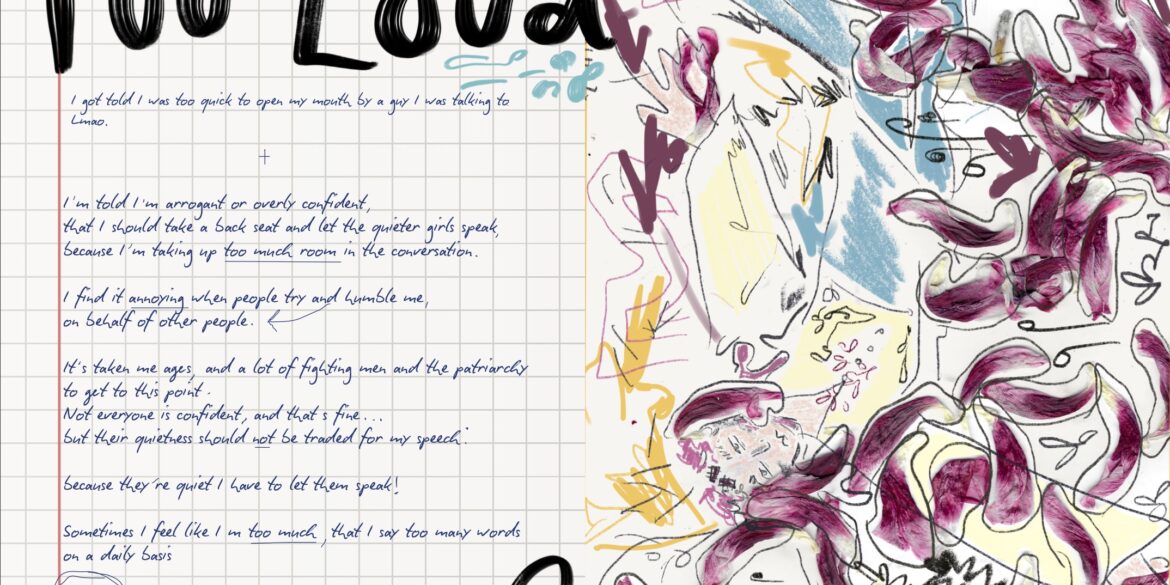 Too Loud
I got told I was too quick to open my mouth by a guy I was talking to
Lmao.
I'm told I'm arrogant or overly confident,
that I should take a back seat and let the quieter girls speak,
because I'm taking up too much room in the conversation.
I find it annoying when people try and humble me,
on behalf of other people.
It's taken me ages, and a lot of fighting men and the patriarchy
to get to this point.
Not everyone is confident, and that s fine...
but their quietness should not be traded for my speech.
because they're quiet I have to let them speak!
Sometimes I feel like I m too much, that I say too many words
on a daily basis